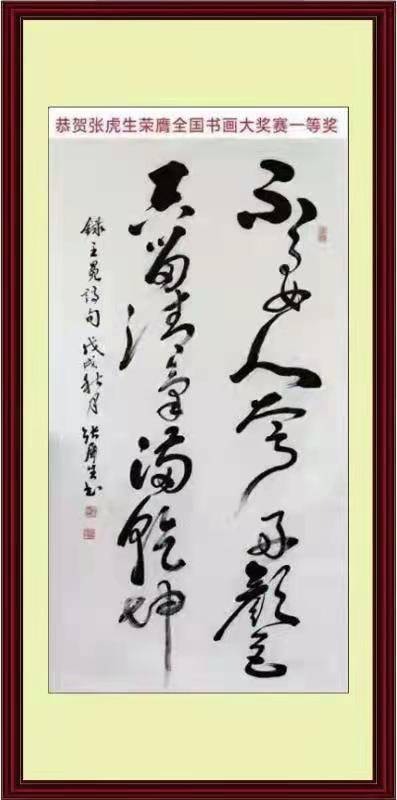 恭贺张虎生荣膺全国书画大奖赛一等奖
不要人夸好顏色
只留清氣滿乾坤
録王冕詩句 戊戌秋月 张虎生书